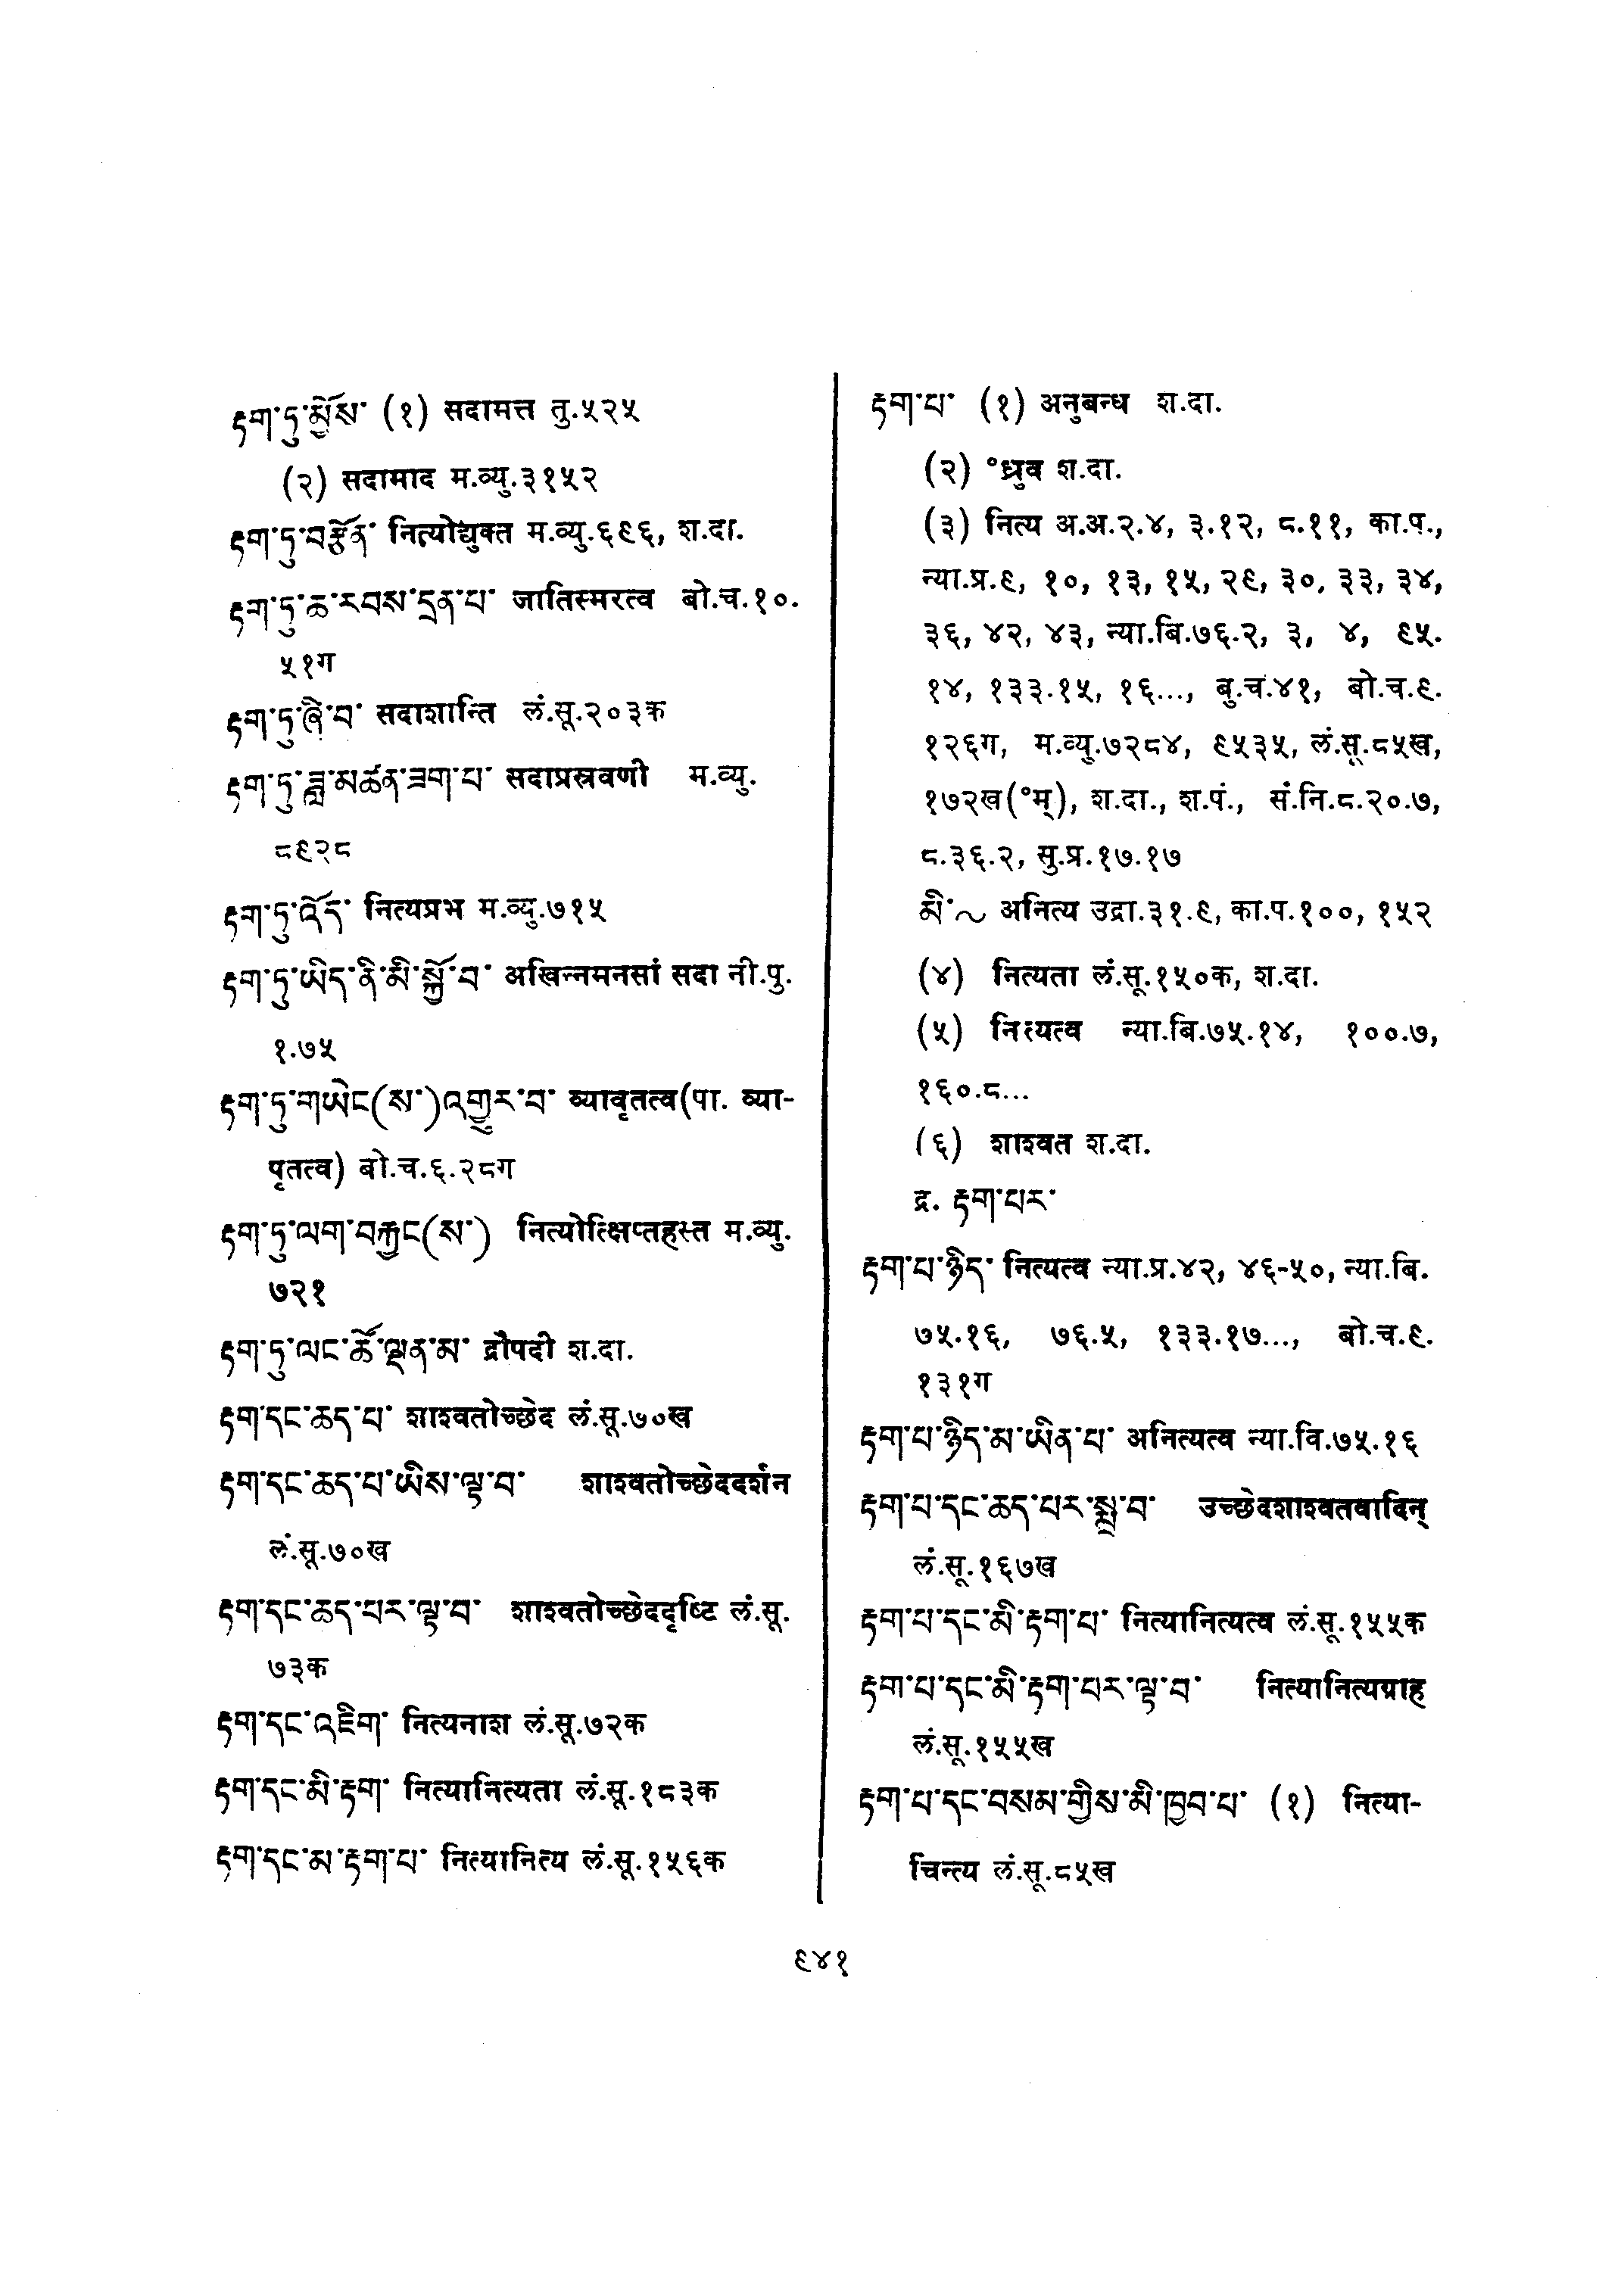 རྟག་ཏུ་མྱོས་ (१) सदामत्त तु.५२५
(२) सदामाद म.व्यु.३१५२
རྟག་ཏུ་བརྩོན་ नित्योद्युक्त म.व्यु.६९६, श.दा.
རྟག་ཏུ་ཆ་རབས་དྲན་པ་ जातिस्मरत्व बो.च.१०.
५१ग
རྟག་ཏུ་ཞི་བ་ सदाशान्ति लं.सू.२०३क
རྟག་ཏུ་ཟླ་མཚན་ཟག་པ་ सदाप्रस्रवणी म.व्यु.
८९२८
རྟག་ཏུ་འོད་ नित्यप्रभ म.व्यु.७१५
རྟག་ཏུ་ཡིད་ནི་མི་སྐྱོ་བ་ अखिन्नमनसां सदा नी.पु.
१.७५
རྟག་ཏུ་གཡེང(ས་)འགྱུར་བ་ व्यावृतत्व(पा. व्या-
पृतत्व) बो.च.६.२८ग
རྟག་ཏུ་ལག་བརྐྱང(ས་) नित्योत्क्षिप्तहस्त म.व्यु.
७२१
རྟག་ཏུ་ལང་ཚོ་ལྡན་མ་ द्रौपदी श.दा.
རྟག་དང་ཆད་པ་ शाश्वतोच्छेद लं.सू.७०ख
རྟག་དང་ཆད་པ་ཡིས་ལྟ་བ་ शाश्वतोच्छेददर्शन
लं.सू.७०ख
རྟག་དང་ཆད་པར་ལྟ་བ་ शाश्वतोच्छेददृष्टि लं.सू.
७३क
རྟག་དང་འཇིག་ नित्यनाश लं.सू.७२क
རྟག་དང་མི་རྟག་ नित्यानित्यता लं.सू.१८३क
རྟག་དང་མ་རྟག་པ་ नित्यानित्य लं.सू.१५६क
རྟག་པ་ (१) अनुबन्ध श.दा.
(२) °ध्रुव श.दा.
(३) नित्य अ.अ.२.४, ३.१२, ८.११, का.प.,
न्या.प्र.९, १०, १३, १५, २९, ३०, ३३, ३४,
३६, ४२, ४३, न्या.बि.७६.२, ३, ४, ९५.
१४, १३३.१५, १६..., बु.च.४१, बो.च.९.
१२६ग, म.व्यु.७२८४, ९५३५, लं.सू.८५ख,
१७२ख(°म्), श.दा., श.पं., सं.नि.८.२०.७,
८.३६.२, सु.प्र.१७.१७
མི་~ अनित्य उद्रा.३१.९, का.प.१००, १५२
(४) नित्यता लं.सू.१५०क, श.दा.
(५) नित्यत्व न्या.बि.७५.१४, १००.७,
१६०.८...
(६) शाश्वत श.दा.
द्र. རྟག་པར་
རྟག་པ་ཉིད་ नित्यत्व न्या.प्र.४२, ४६-५०, न्या.बि.
७५.१६, ७६.५, १३३.१७..., बो.च.९.
१३१ग
རྟག་པ་ཉིད་མ་ཡིན་པ་ अनित्यत्व न्या.वि.७५.१६
རྟག་པ་དང་ཆད་པར་སྨྲ་བ་ उच्छेदशाश्वतवादिन्
लं.सू.१६७ख
རྟག་པ་དང་མི་རྟག་པ་ नित्यानित्यत्व लं.सू.१५५क
རྟག་པ་དང་མི་རྟག་པར་ལྟ་བ་ नित्यानित्यग्राह
लं.सू.१५५ख
རྟག་པ་དང་བསམ་གྱིས་མི་ཁྱབ་པ་ (१) नित्या-
चिन्त्य लं.सू.८५ख
९४१